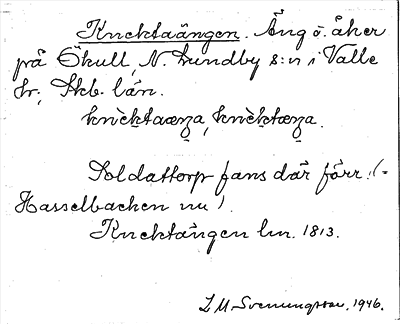 Knektaängen. Äng o. åker
på Ökull, N. Lundby s:n i Valle
hr; Skb. län.
knèktaæŋa, knèktæŋa.
Soldattorp fans där förr. (=
Hasselbacken nu).
Knektängen lm. 1813.
L M Svenungsson. 1946.